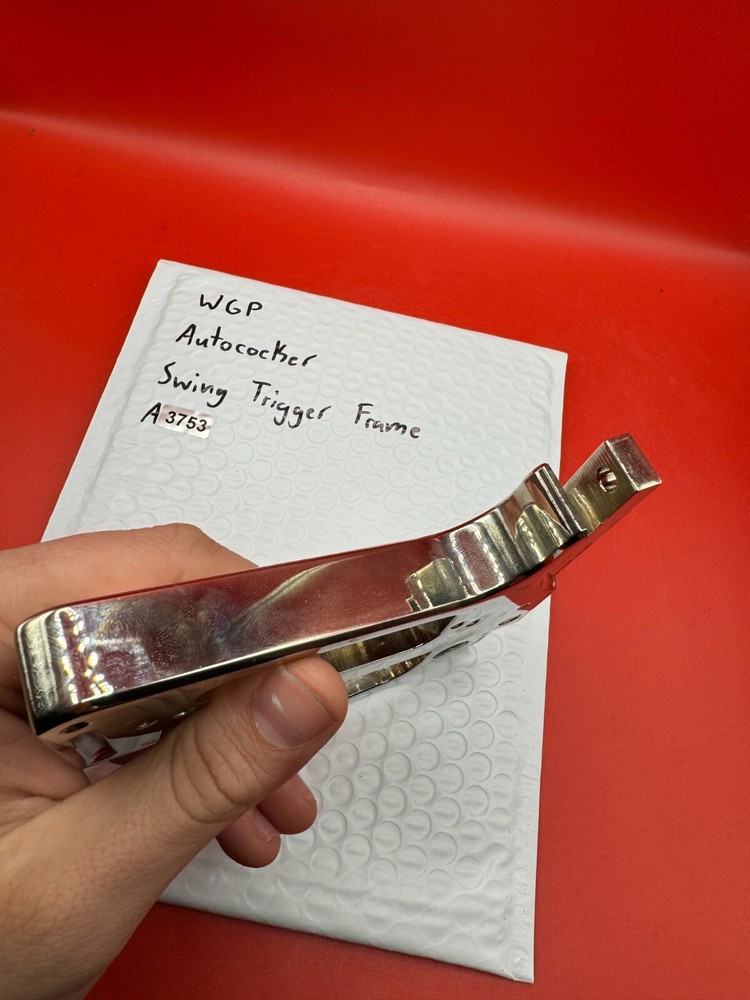 WGP
Autococker
Swing Trigger Frame
A 3753